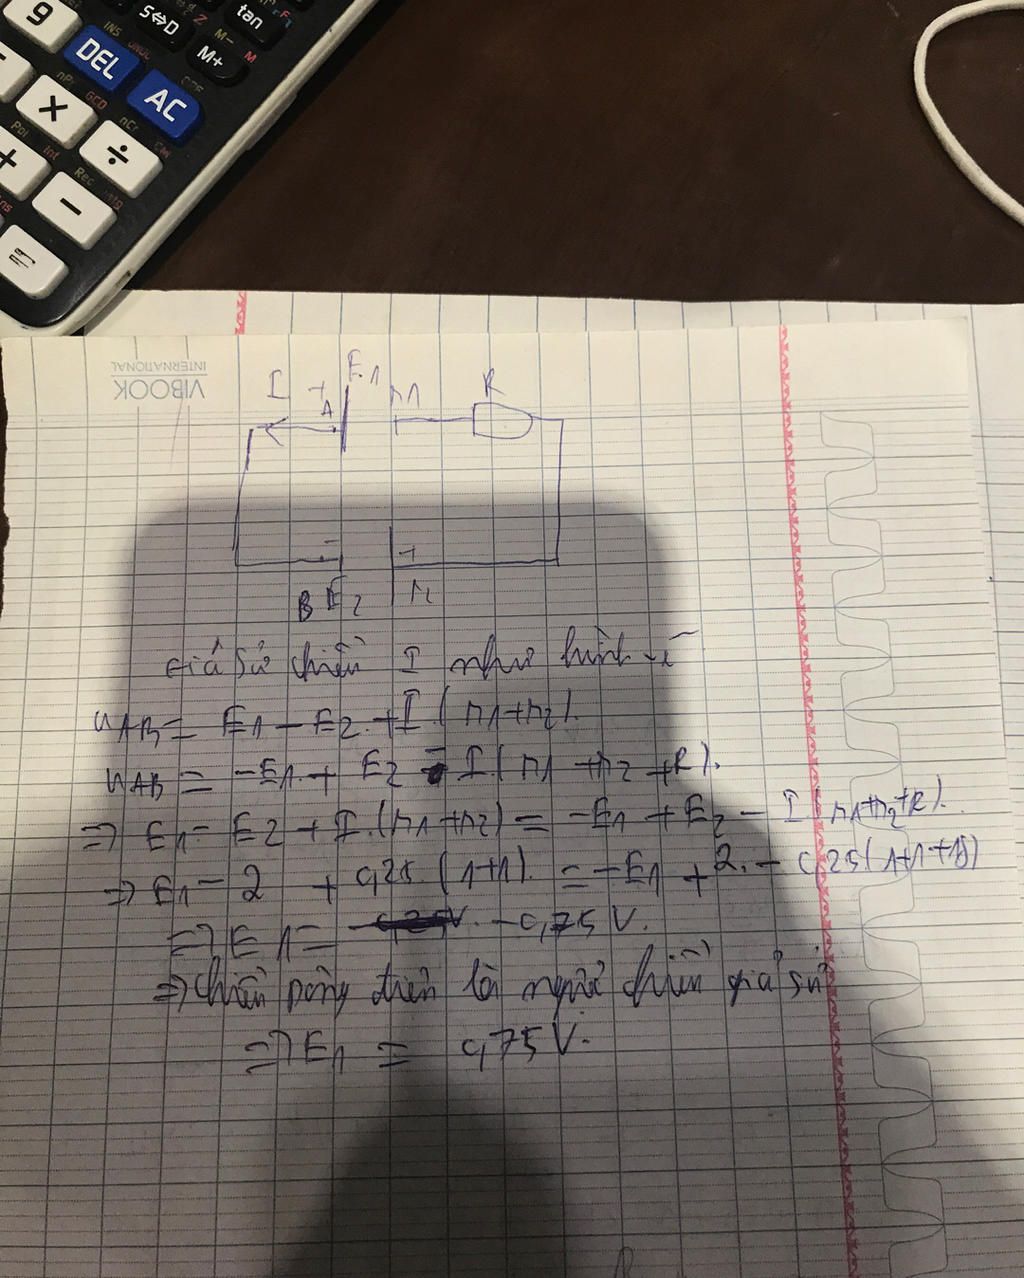 9
S⇔D
tan
INS
M-
M
DEL
M+
AC
GCD
×
nCr
÷
Pol
Int
+
Rec
−
=
VIBOOK
INTERNATIONAL
I + A E1 r1 R
- +
B E2
giả sử chiều I như hình vẽ
UAB = E1 - E2 + I.(r1+r2).
UAB = -E1 + E2 - I.(r1+r2+R).
=> E1 - E2 + I.(r1+r2) = -E1 + E2 - I r1+r2+R).
=> E1 - 2 + 0,25.(1+1). = -E1 + 2. - 0,25(1+1+
=> E1 = -0,75 V.
=> chiều dòng điện là ngược chiều giả sử
=> E1 = 0,75 V.